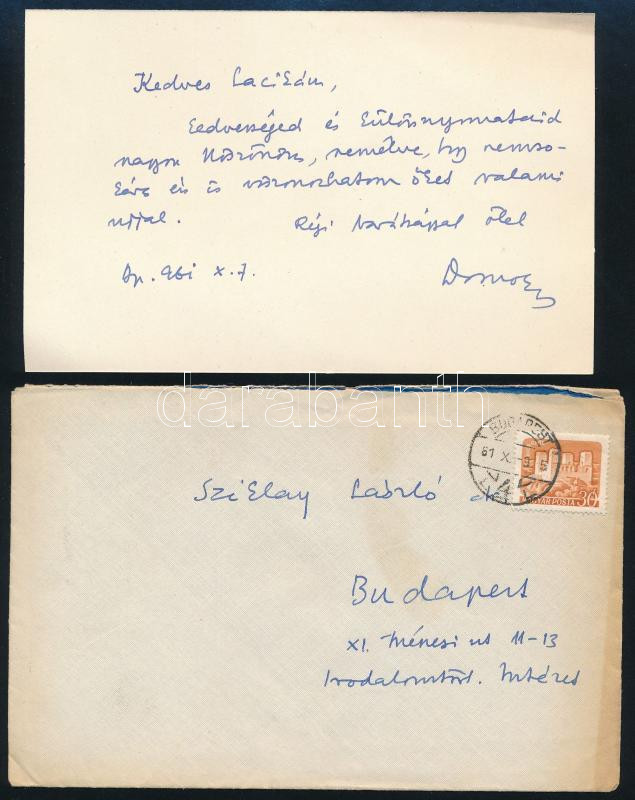 Kedves Lacikám,
kedvességed és különnyomataid
nagyon köszönöm, remélve, hogy nemso-
kára én is viszonozhatom őket valami
ujjal. Régi barátsággal ölel
Bp. 961 X. 7.
darabanth
BUDAPEST
61 X.
MAGYAR POSTA 30
Sziklay László
Budapest
XI. Ménesi ut 11-13
Irodalomtört. Intézet